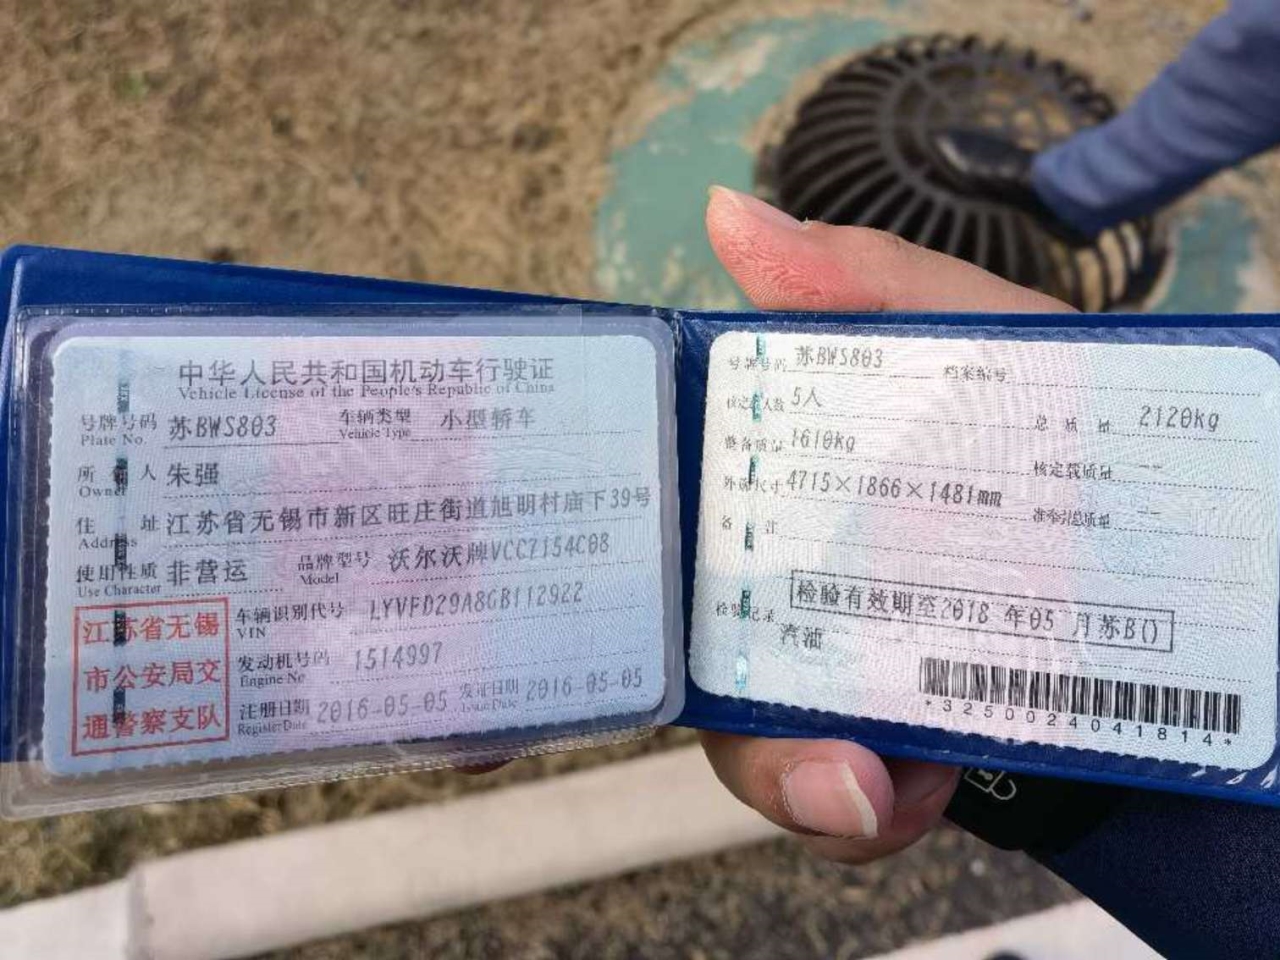 中华人民共和国机动车行驶证
Vehicle License of the People's Republic of China
号牌号码 苏BWS803 车辆类型 小型轿车
Plate No. Vehicle Type
所有人 朱强
Owner
住址 江苏省无锡市新区旺庄街道旭明村庙下39号
Address
使用性质 非营运 品牌型号 沃尔沃牌VCC7154C08
Use Character Model
江苏省无锡
市公安局交
通警察支队
车辆识别代号 LYVFD29A8GB112922
VIN
发动机号码 1514997
Engine No.
注册日期 2016-05-05 发证日期 2016-05-05
Register Date Issue Date
号牌号码 苏BWS803 档案编号
核定载人数 5人 总质量 2120kg
整备质量 1610kg 核定载质量 --
外廓尺寸 4715×1866×1481mm 准牵引总质量 --
备注
检验记录 检验有效期至2018 年05 月苏B()
汽油
*3250024041814*